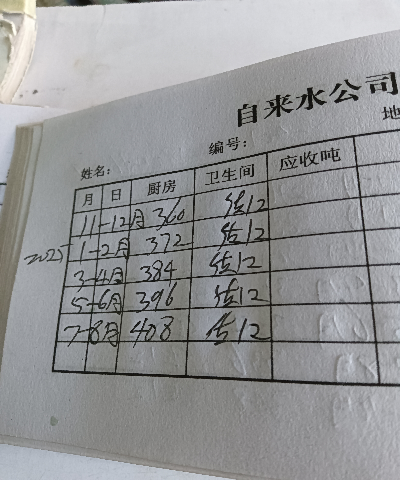 自来水公司
姓名： 编号： 地
月 日 厨房 卫生间 应收吨
11-12月 360 估12
2025 1-2月 372 估12
3-4月 384 估12
5-6月 396 估12
7-8月 408 估12